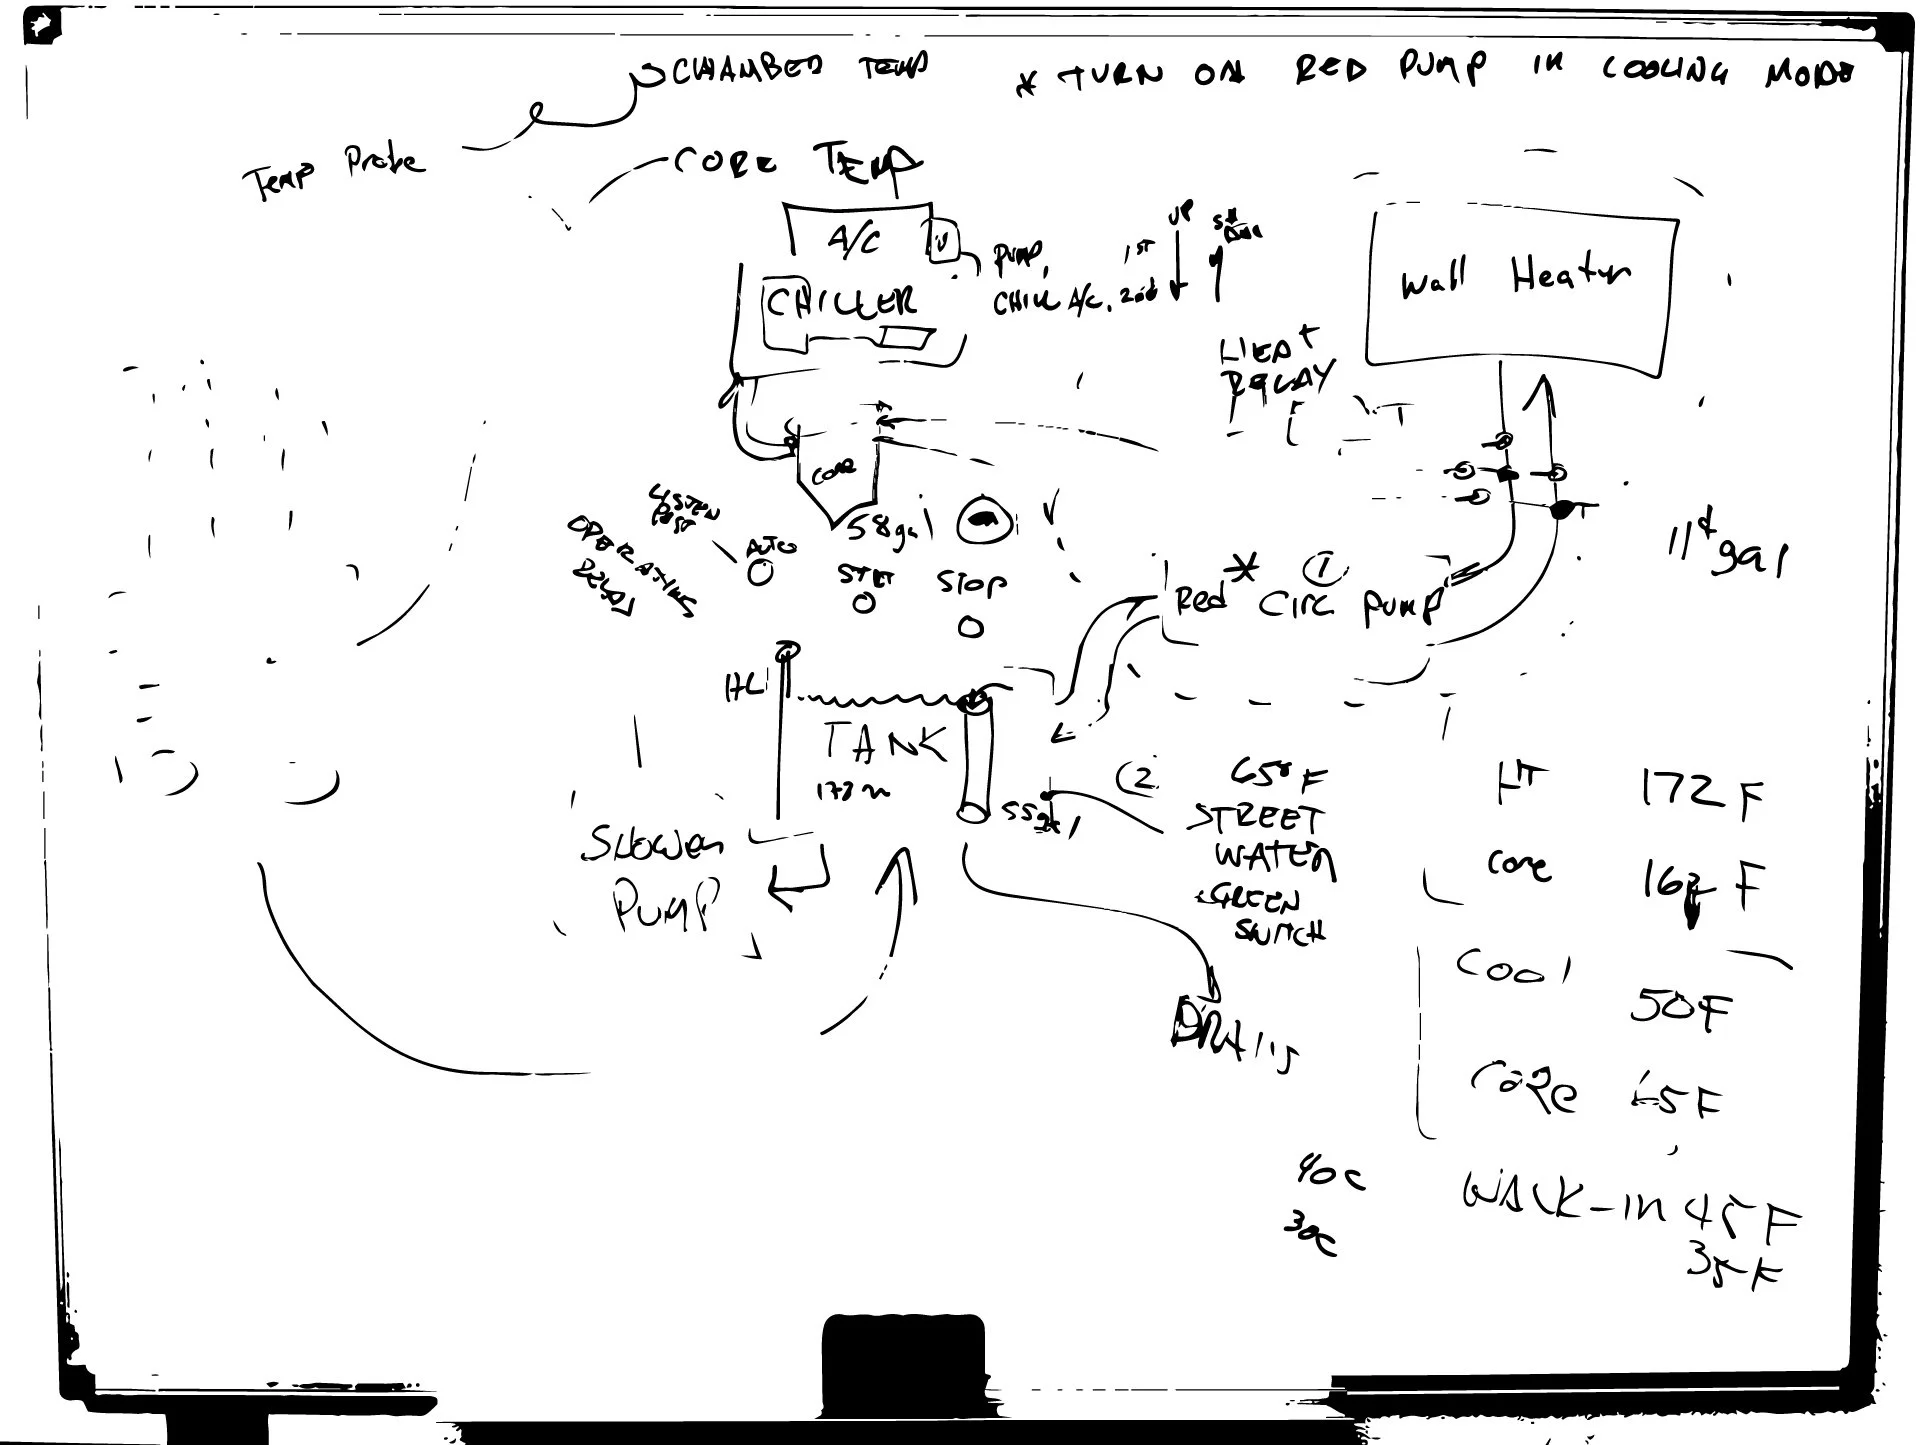 CHAMBER TEMP
* TURN ON RED PUMP IN COOLING MODE
Temp Probe
CORE TEMP
A/C
CHILLER
PUMP, 1ST
CHILL A/C, 2nd
UP
Wall Heater
HEAT
RELAY
CORE
58gal
LISTEN
FIRST
OPERATING
RELAY
AUTO
STOP
Red * Circ Pump
1
gal
HL
TANK
SHOWER
PUMP
2
65°F
STREET
WATER
GREEN
SWITCH
DRAIN
HT 172 F
Core
Cool
50F
CORE 65F
40C
30C
WALK-IN 45F
35F